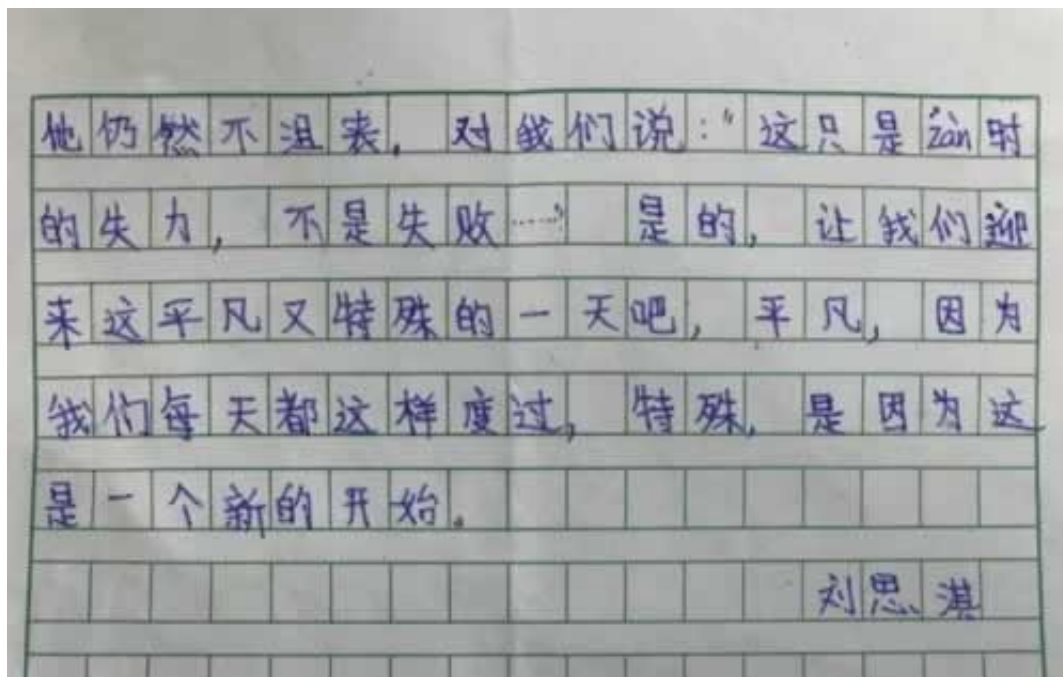 他仍然不沮丧，对我们说：“这只是zàn时
的失力，不是失败……”是的，让我们迎
来这平凡又特殊的一天吧，平凡，因为
我们每天都这样度过，特殊，是因为这
是一个新的开始。
刘思淇